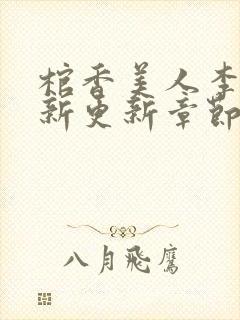 棺香美人李
新更新章節
八月飛鷹